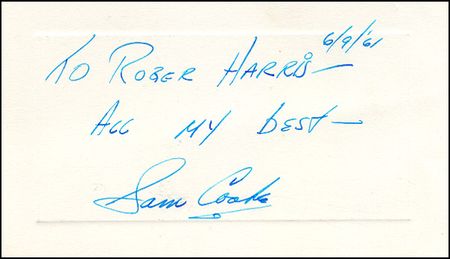 6/9/'61
TO ROGER HARRIS—
ALL MY BEST—
Sam Cooke